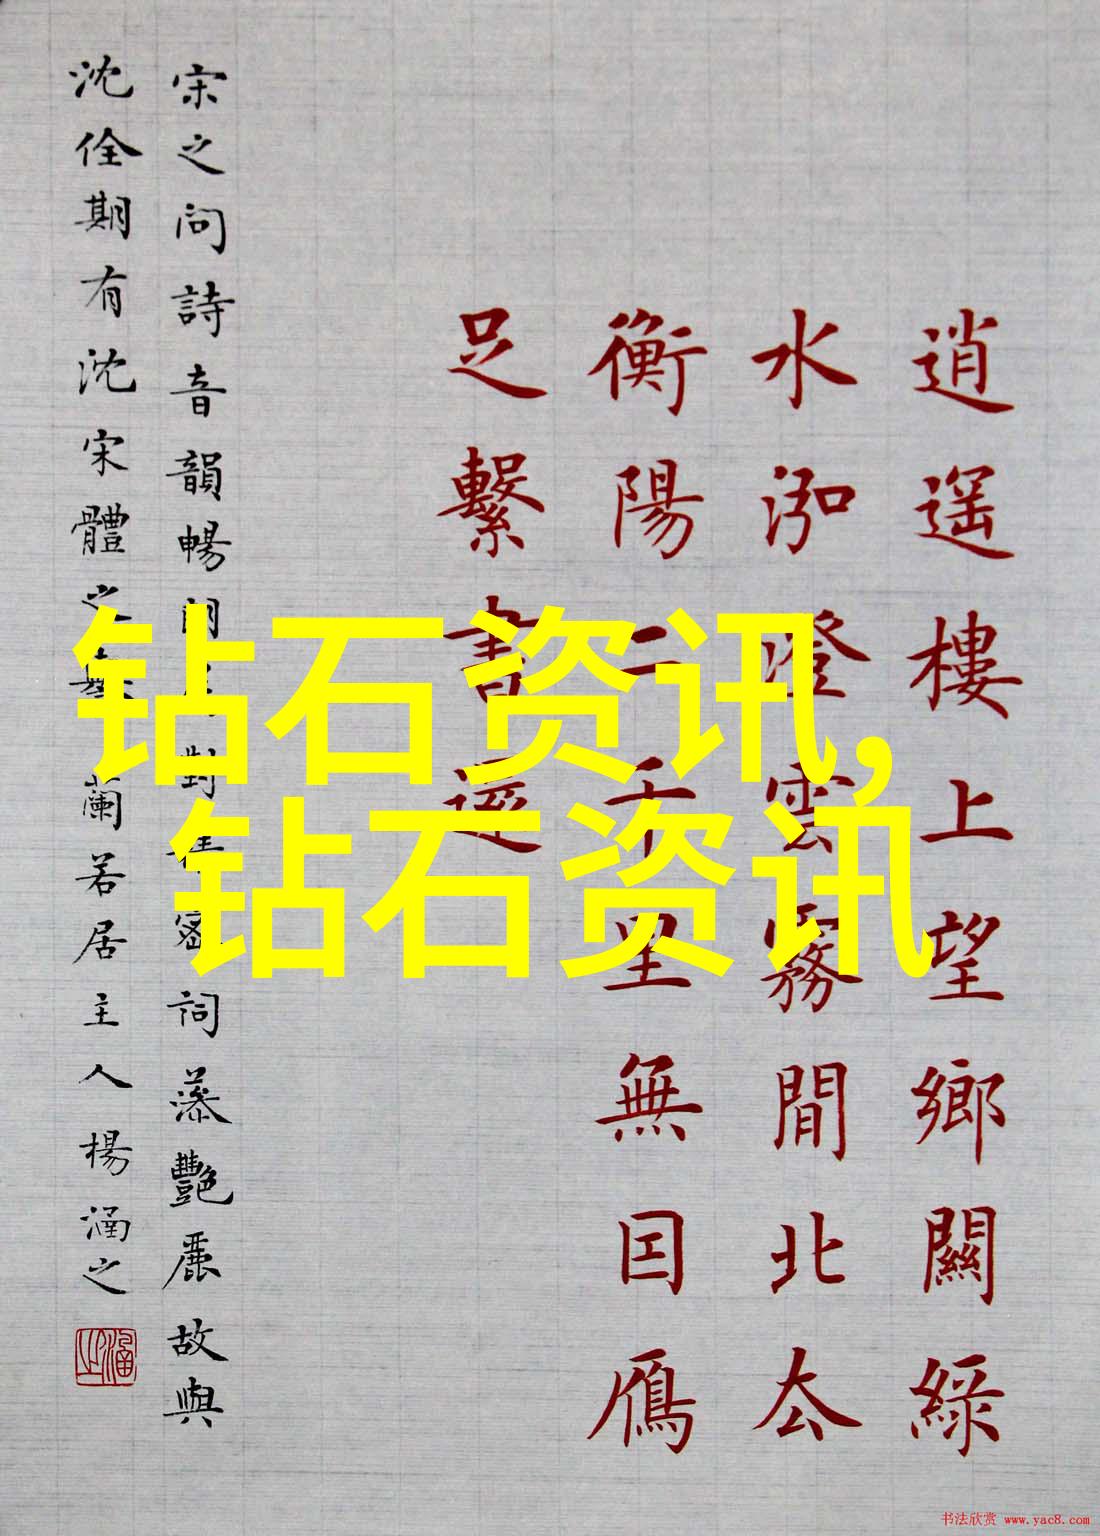 逍遥樓上望鄉關綠
水泓澄雲霧間北去
衡陽二千里無因雁
足繫書還
宋之問詩音韻暢朗對密詞藻艷麗故與
沈佺期有沈宋體之蘭若居主人楊涵之
钻石资讯,
钻石资讯
书法欣赏 www.yac8.com